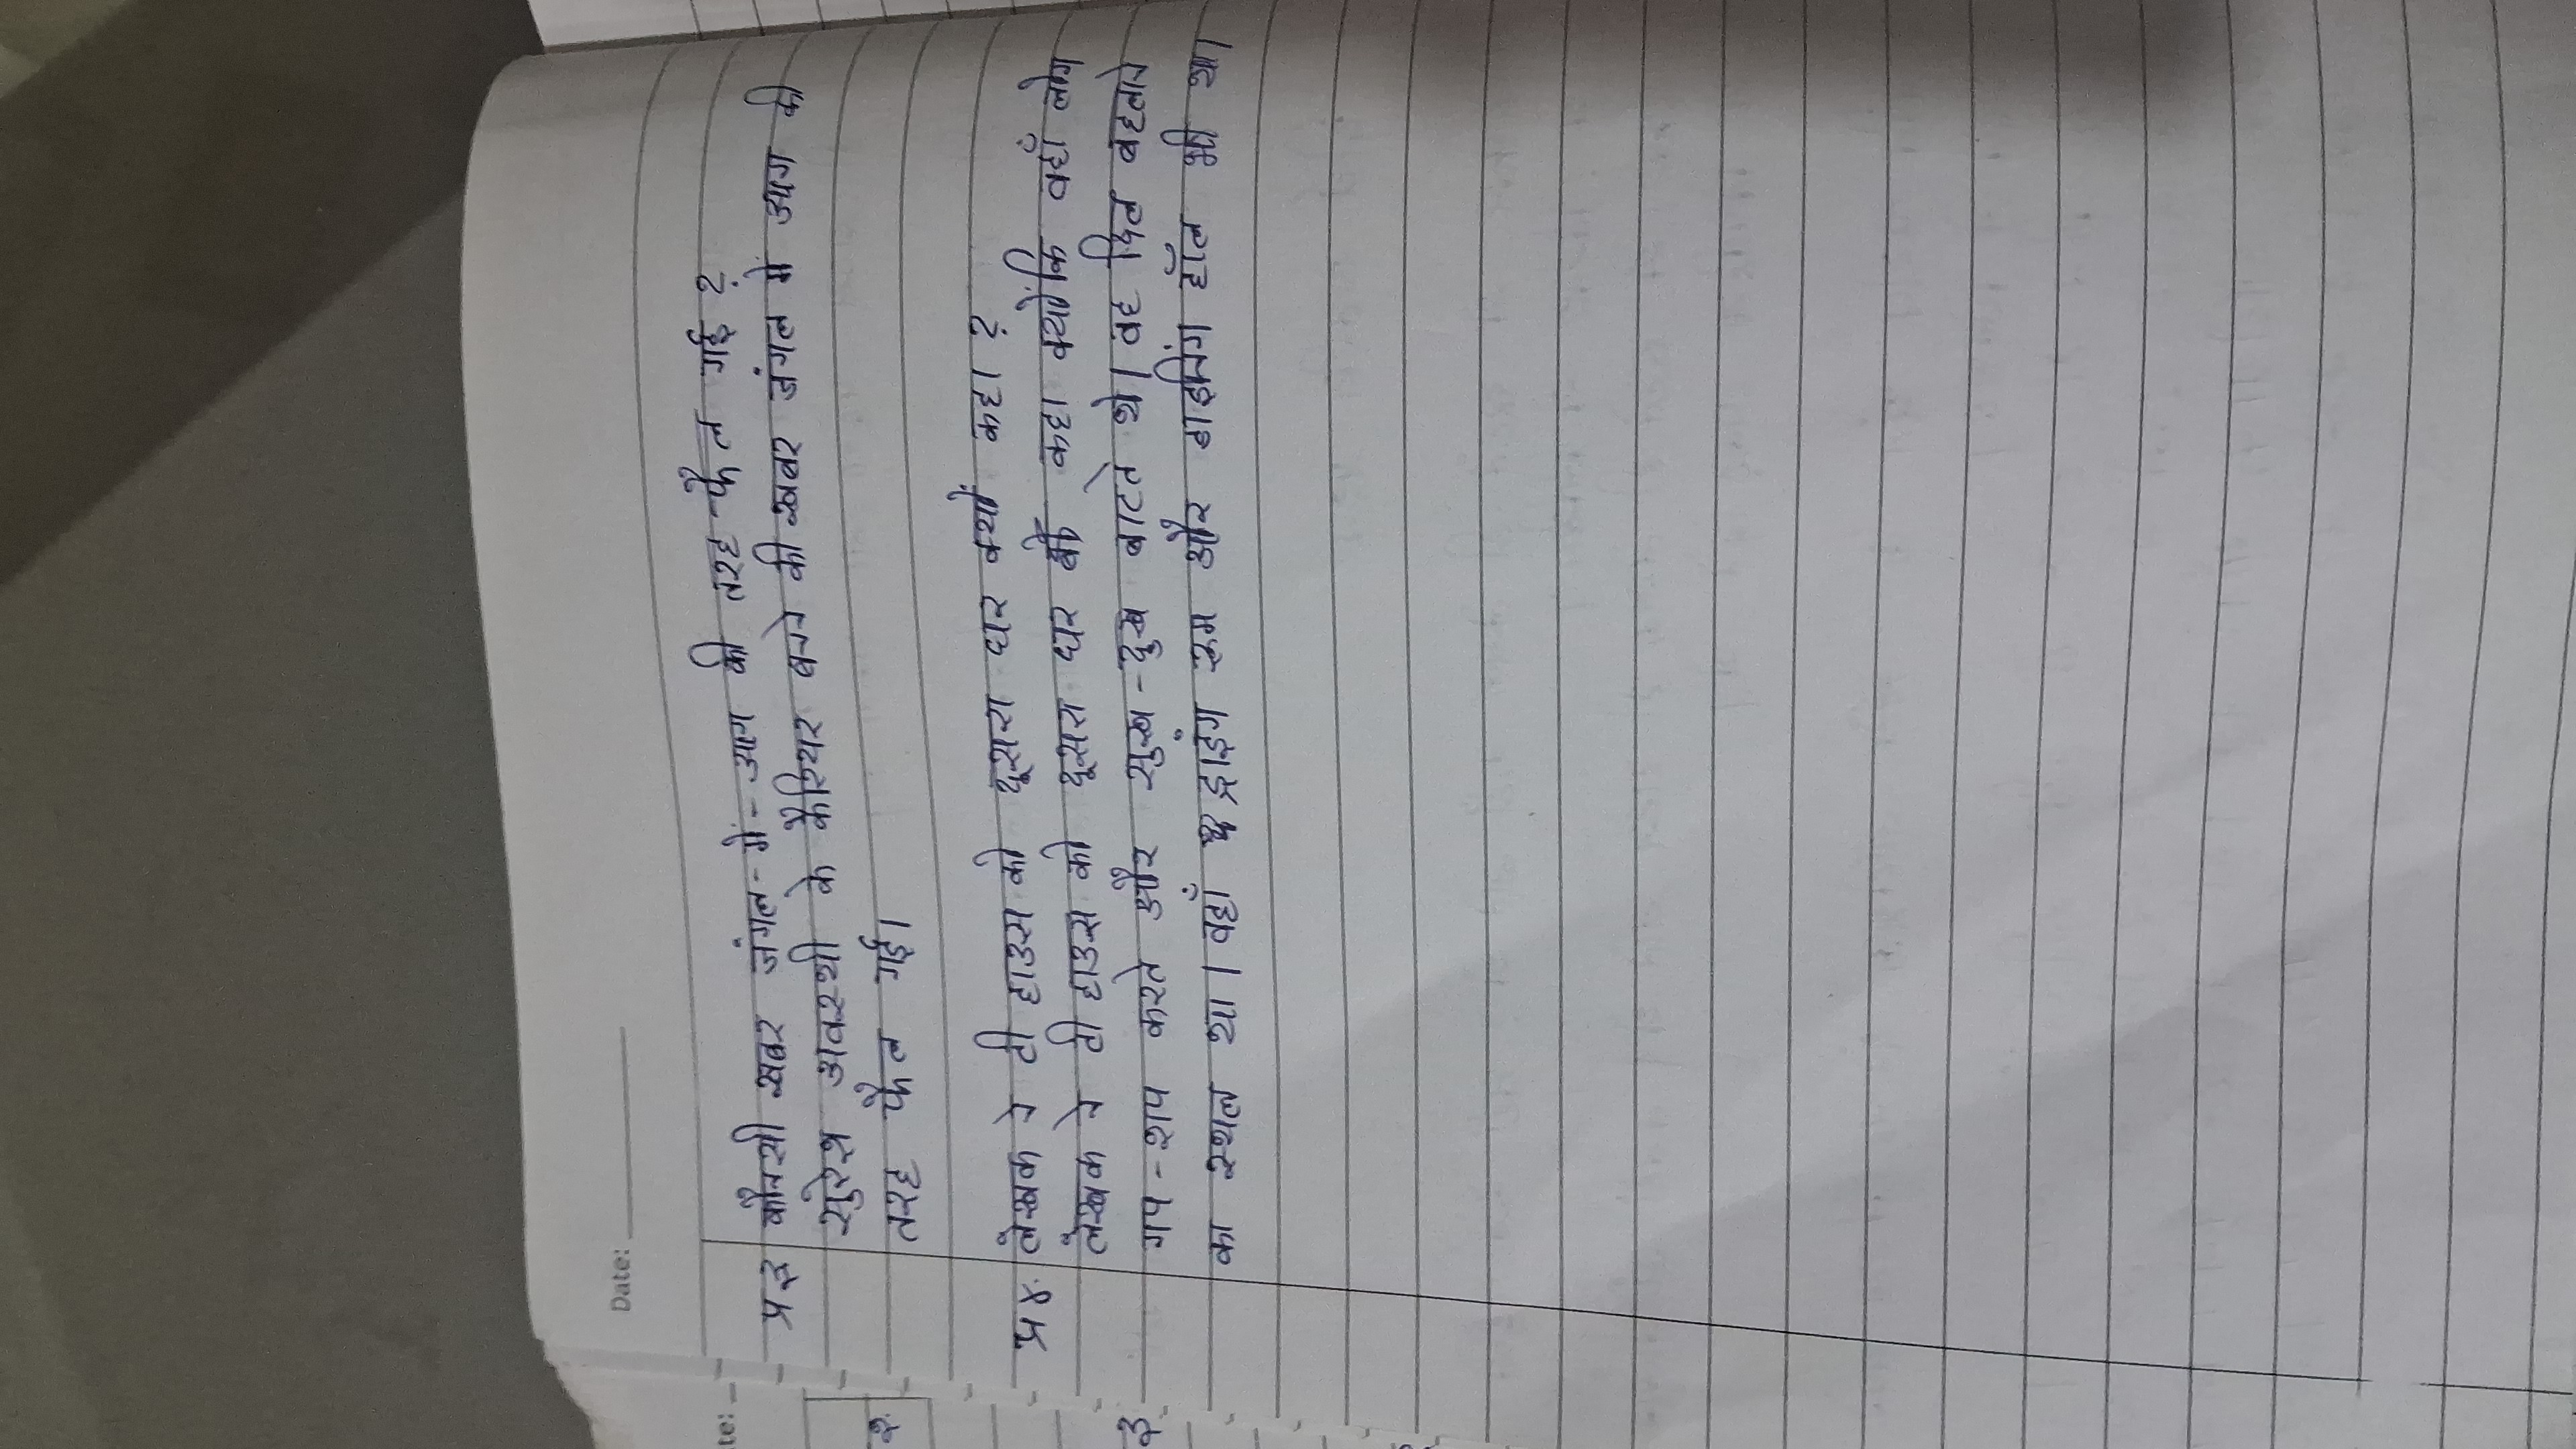 Date:
प्र३ कौनसी खबर जंगल-में-आग की तरह फैल गई?
सुरेश अवस्थी के कैरियर बनने की खबर जंगल में आग की
तरह फैल गई।
प्र४. लेखक ने टी हाउस को दूसरा घर क्यों कहा?
लेखक ने टी हाउस को दूसरा घर कहा क्योंकि वहाँ लोग
गप-शप करते और सुख-दुख बाटते थे। वह दिल बहलाने
का स्थल था। वहाँ ड्राइंग रूम और डाइनिंग हॉल भी था।
te:
२.
३